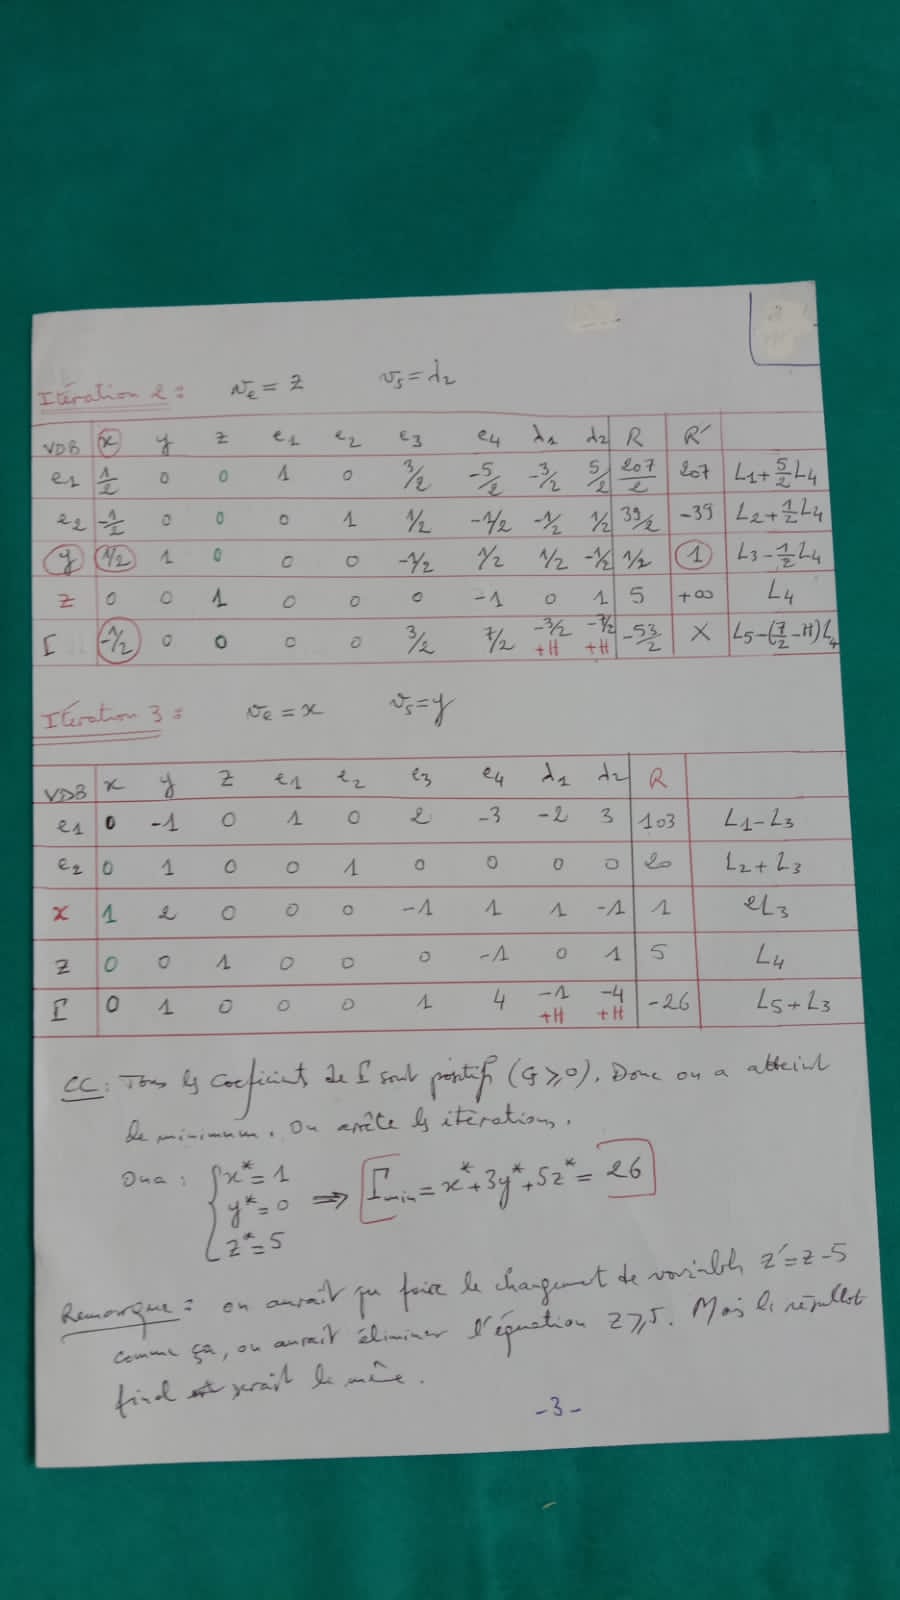 Itération 2 : Ve = z Vs = λ2
VDB x y z e1 e2 e3 e4 λ1 λ2 R R'
e1 1/2 0 0 1 0 3/2 -5/2 -3/2 5/2 207/2 207 L1+5/2 L4
e2 -1/2 0 0 0 1 1/2 -1/2 -1/2 1/2 39/2 -39 L2+1/2 L4
y 1/2 1 0 0 0 -1/2 1/2 1/2 -1/2 1/2 1 L3-1/2 L4
z 0 0 1 0 0 0 -1 0 1 5 +∞ L4
Γ -1/2 0 0 0 0 3/2 7/2 -3/2+M -7/2+M -53/2 X L5-(7/2-M)L4
Itération 3 : Ve = x Vs = y
VDB x y z e1 e2 e3 e4 λ1 λ2 R
e1 0 -1 0 1 0 2 -3 -2 3 103 L1-L3
e2 0 1 0 0 1 0 0 0 0 20 L2+L3
x 1 2 0 0 0 -1 1 1 -1 1 2L3
z 0 0 1 0 0 0 -1 0 1 5 L4
Γ 0 1 0 0 0 1 4 -1+M -4+M -26 L5+L3
CC : Tous les coeficients de Γ sont positifs (G ≥ 0). Donc on a atteint
le minimum. On arrête les itérations.
On a : { x* = 1
y* = 0 ⟹ Γmin = x*+3y*+5z* = 26
z* = 5
Remarque : on aurait pu faire le changement de variables z' = z-5
comme ça, on aurait éliminer l'équation z ≥ 5. Mais le résultat
final serait le même.
-3-